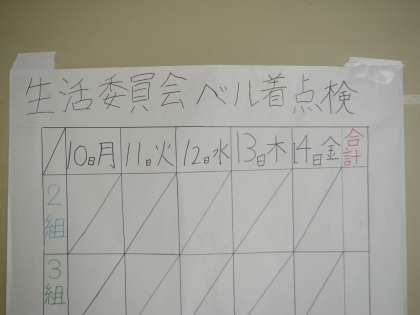 生活委員会ベル着点検
10日月 11日火 12日水 13日木 14日金 合計
2組
3組